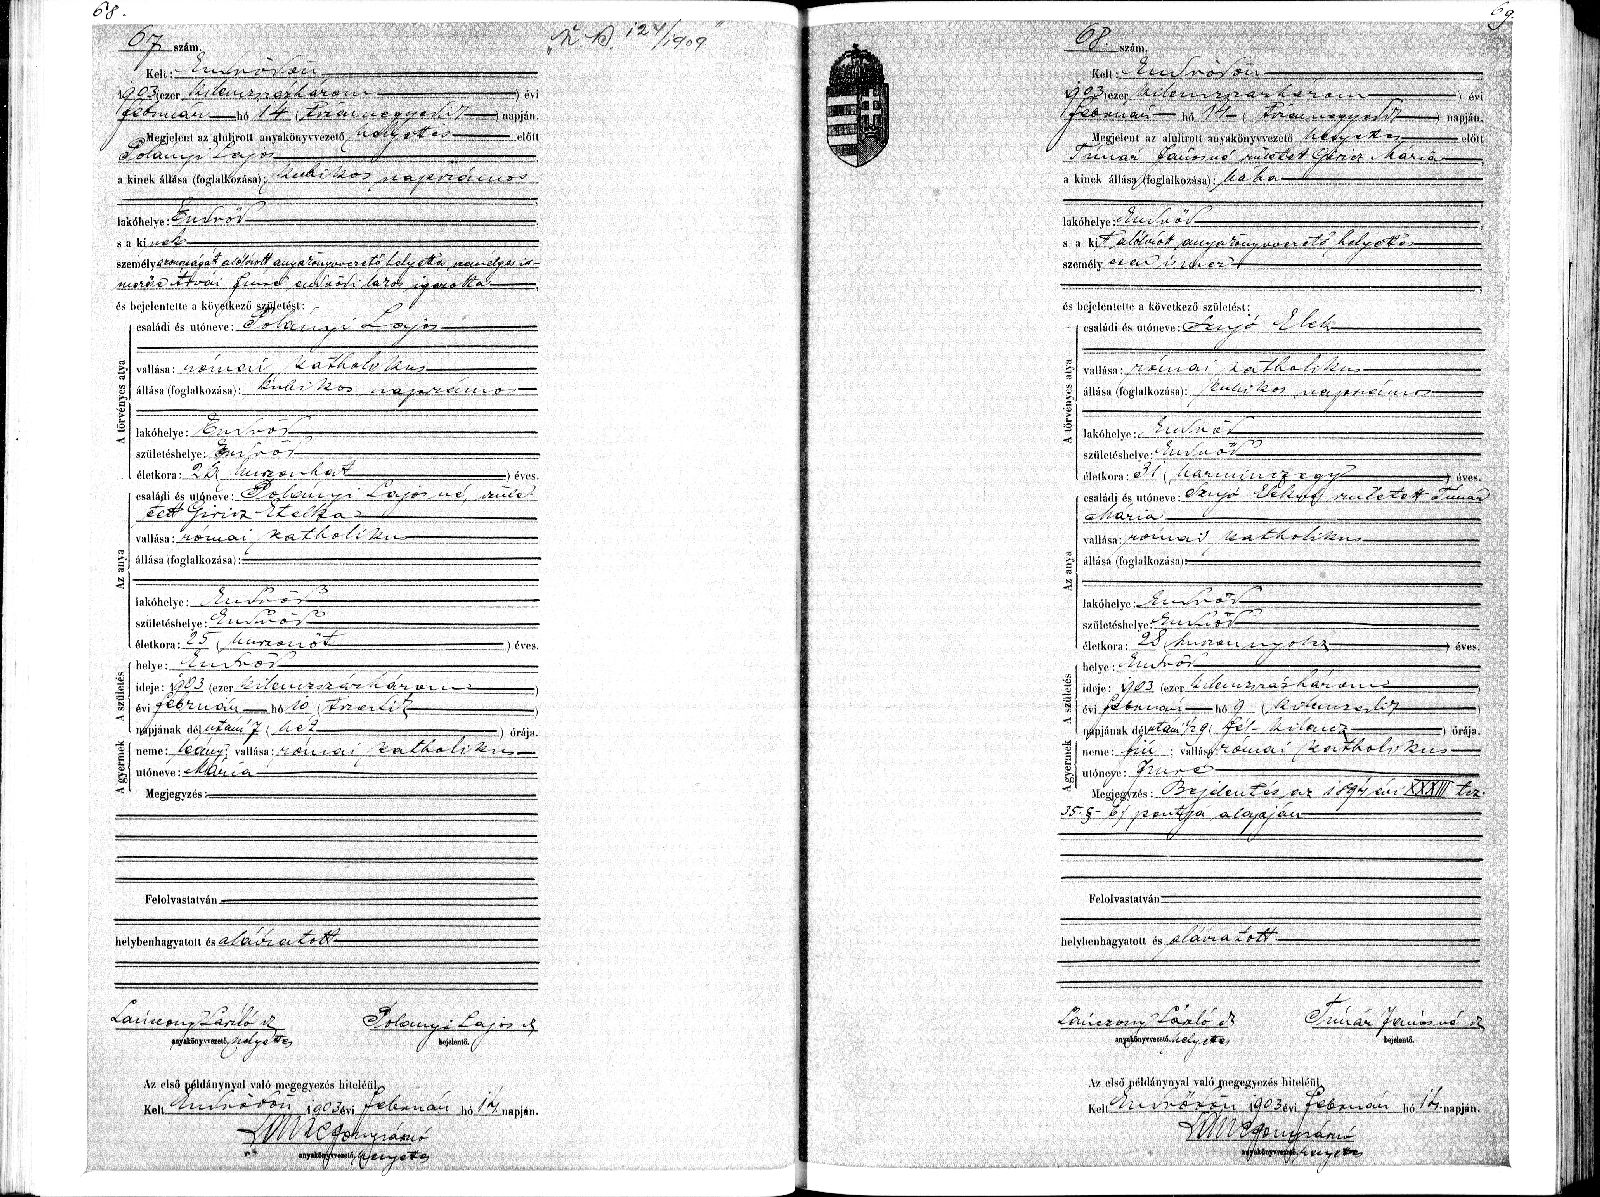 68.
67 szám.
Kelt: Endrődön
1903 (ezer kilencszázhárom) évi
február hó 14 (tizennegyedik) napján.
Megjelent az alulirott anyakönyvvezető helyettes előtt
Polányi Lajos
a kinek állása (foglalkozása): kubikos napszámos
lakóhelye: Endrőd
s a kinek
személyazonosságát alólirott anyakönyvvezető helyettes
endrődi lakos igazolta
és bejelentette a következő születést:
A törvényes atya
családi és utóneve: Polányi Lajos
vallása: római katholikus
állása (foglalkozása): kubikos napszámos
lakóhelye: Endrőd
születéshelye: Endrőd
életkora: 26 (huszonhat) éves.
Az anya
családi és utóneve: Polányi Lajosné, szüle-
tett Giricz Etelka
vallása: római katholikus
állása (foglalkozása):
lakóhelye: Endrőd
születéshelye: Endrőd
életkora: 25 (huszonöt) éves.
A születés
helye: Endrőd
ideje: 1903 (ezer kilencszázhárom)
évi február hó 10 (tizedik)
napjának délután 7 (hét) órája.
A gyermek
neme: leány; vallása: római katholikus
utóneve: Mária
Megjegyzés:
Felolvastatván
helybenhagyatott és aláiratott
Lánczony László sk
anyakönyvvezető helyettes
Polányi Lajos sk
bejelentő.
Az első példánynyal való megegyezés hiteléül
Kelt Endrődön 1903 évi február hó 14 napján.
anyakönyvvezető helyettes
124/1909
69
68 szám.
Kelt: Endrődön
1903 (ezer kilencszázhárom) évi
február hó 14 (tizennegyedik) napján.
Megjelent az alulirott anyakönyvvezető helyettes előtt
Timár Jánosné született Giricz Mária
a kinek állása (foglalkozása): bába
lakóhelye: Endrőd
s a kit alólirott anyakönyvvezető helyettes
személyesen ismer
és bejelentette a következő születést:
A törvényes atya
családi és utóneve: Szujó Elek
vallása: római katholikus
állása (foglalkozása): kubikos napszámos
lakóhelye: Endrőd
születéshelye: Endrőd
életkora: 31 (harminczegy) éves.
Az anya
családi és utóneve: Szujó Elekné született Timár
Mária
vallása: római katholikus
állása (foglalkozása):
lakóhelye: Endrőd
születéshelye: Endrőd
életkora: 28 (huszonnyolcz) éves.
A születés
helye: Endrőd
ideje: 1903 (ezer kilencszázhárom)
évi február hó 9 (kilenczedik)
napjának délután 1/2 9 (fél kilencz) órája.
A gyermek
neme: fiú; vallása: római katholikus
utóneve: Imre
Megjegyzés: Bejelentés az 1894 évi XXXIII tcz.
35. § b) pontja alapján
Felolvastatván
helybenhagyatott és aláiratott
Lánczony László sk
anyakönyvvezető helyettes
Timár Jánosné sk
bejelentő.
Az első példánynyal való megegyezés hiteléül
Kelt Endrődön 1903 évi február hó 14 napján.
anyakönyvvezető helyettes